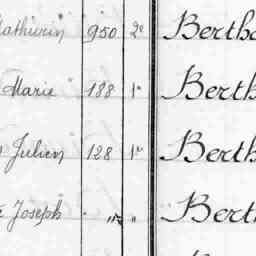 Mathurin 950 2e Bertho
Marie 188 1e Berth
Julien 128 1er Berth
Joseph " " Bert